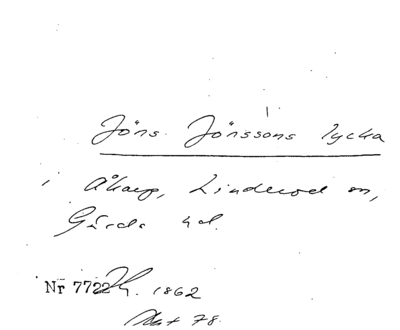 Jöns Jönssons lycka
i Åkarp, Linderöd sn,
Gärds hd.
Nr 7722 1862